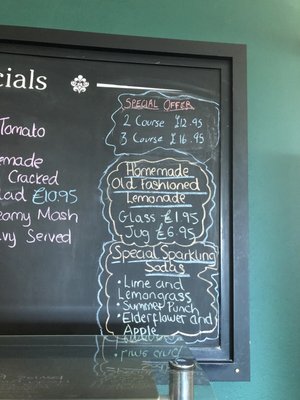 cials
Tomato
emade
Cracked
lad £10.95
eamy Mash
avy Served
SPECIAL OFFER
2 Course £12.95
3 Course £16.95
Homemade
Old Fashioned
Lemonade
Glass £1.95
Jug £6.95
Special Sparkling
Sodas
• Lime and
Lemongrass
• Summer Punch
• Elderflower and
Apple